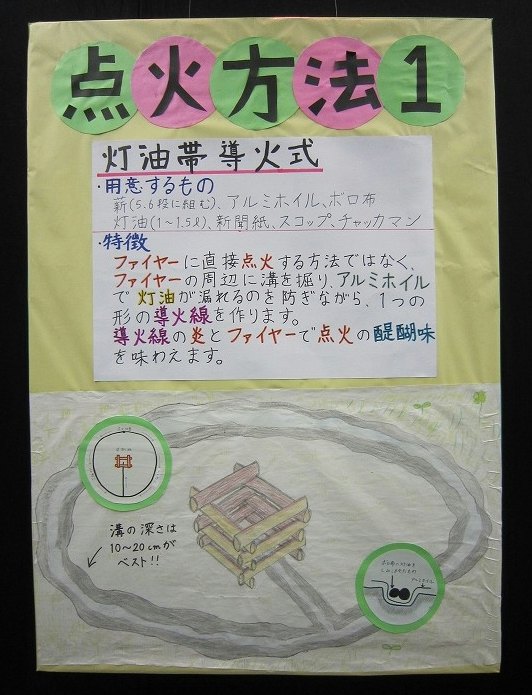 点火方法1
灯油帯導火式
・用意するもの
薪(5.6段に組む)、アルミホイル、ボロ布
灯油(1〜1.5ℓ)、新聞紙、スコップ、チャッカマン
・特徴
ファイヤーに直接点火する方法ではなく、
ファイヤーの周辺に溝を掘り、アルミホイル
で灯油が漏れるのを防ぎながら、1つの
形の導火線を作ります。
導火線の炎とファイヤーで点火の醍醐味
を味わえます。
溝の深さは
10〜20cmが
ベスト!!
アルミホイル